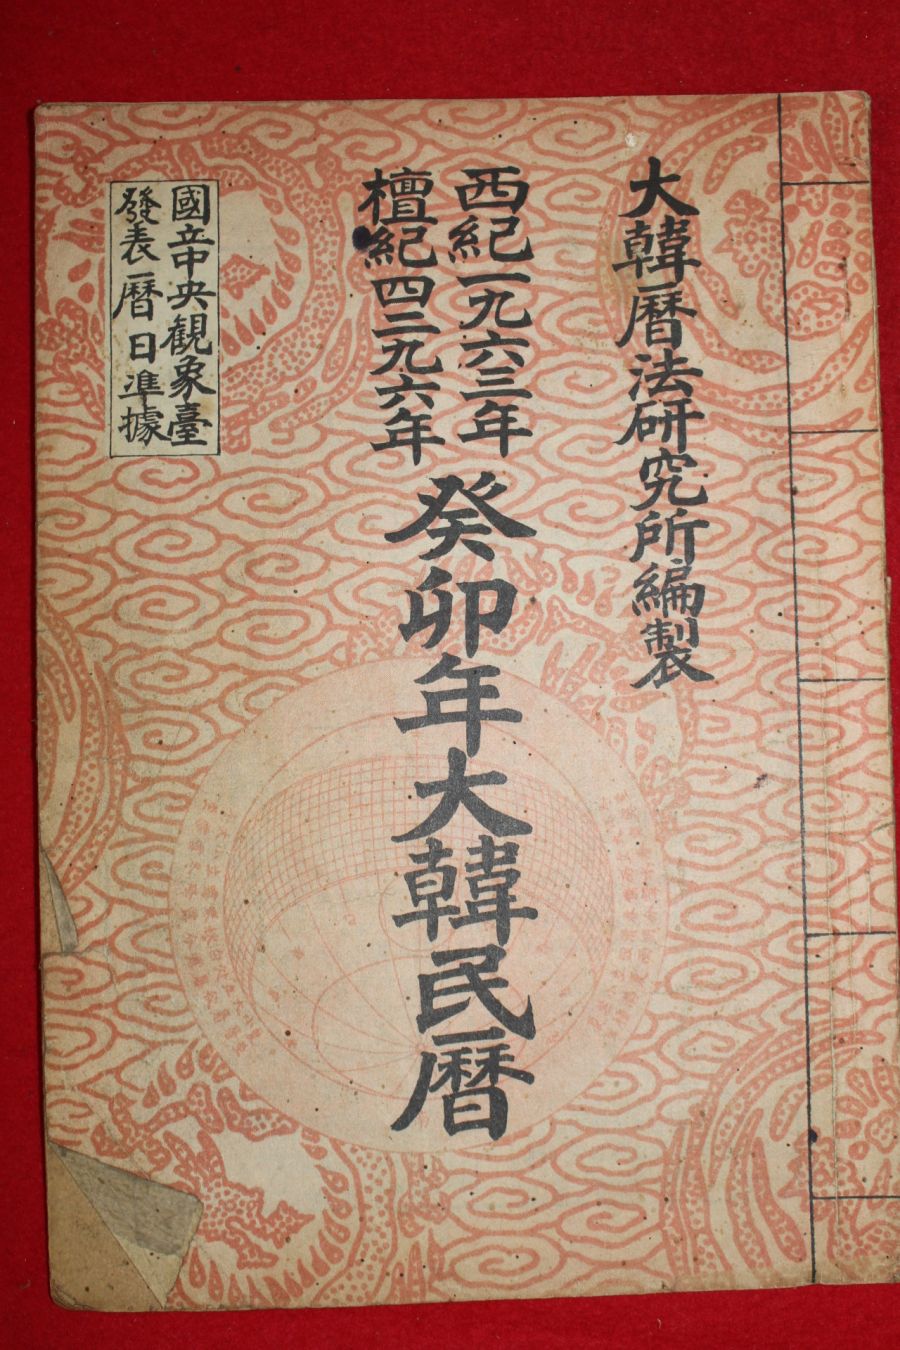 大韓曆法研究所編製
西紀一九六三年
檀紀四二九六年
癸卯年大韓民曆
國立中央觀象臺
發表曆日準據